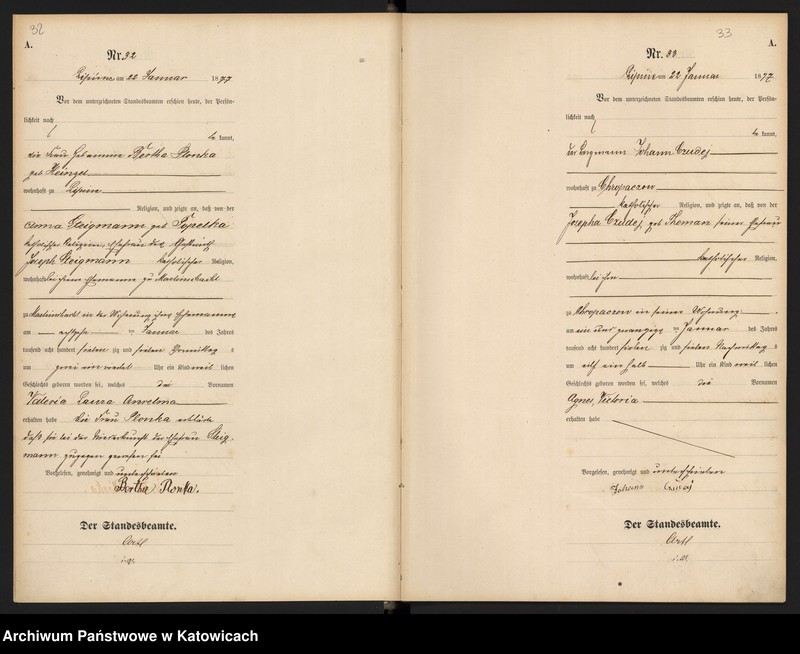 32
A.
Nr. 32
Lipine am 22 Januar 1877
Vor dem unterzeichneten Standesbeamten erschien heute, der Persön-
lichkeit nach
kannt,
die Frau Hebamme Bertha Plonka
geb Heinzel
wohnhaft zu Lipine
Religion, und zeigte an, daß von der
Anna Steigmann geb
katholischer Religion, Ehefrau des
Joseph Steigmann katholischer Religion,
wohnhaft bei ihrem Ehemanne zu
zu in der Wohnung ihres Ehemannes
am achtzehn ten Januar des Jahres
tausend acht hundert sieben zig und sieben Vormittag s
um Uhr ein Kind weib lichen
Geschlechts geboren worden sei, welches die Vornamen
Valeria Laura
erhalten habe Die Frau Plonka erklärte
daß sie bei der Niederkunft der Ehefrau Steig-
mann zugegen gewesen sei
Vorgelesen, genehmigt und unterschrieben
Bertha Plonka.
Der Standesbeamte.
i. V.
33
A.
Nr. 33
Lipine am 22 Januar 1877
Vor dem unterzeichneten Standesbeamten erschien heute, der Persön-
lichkeit nach
kannt,
der Bergmann Johann
wohnhaft zu Chropaczow
katholischer Religion, und zeigte an, daß von der
Josepha geb seiner Ehefrau
katholischer Religion,
wohnhaft bei ihm
zu Chropaczow in seiner Wohnung
am ein und zwanzig ten Januar des Jahres
tausend acht hundert sieben zig und sieben Nachmittag s
um elf ein halb Uhr ein Kind weib lichen
Geschlechts geboren worden sei, welches die Vornamen
Agnes Victoria
erhalten habe
Vorgelesen, genehmigt und unterschrieben
Johann
Der Standesbeamte.
i. V.
Archiwum Państwowe w Katowicach